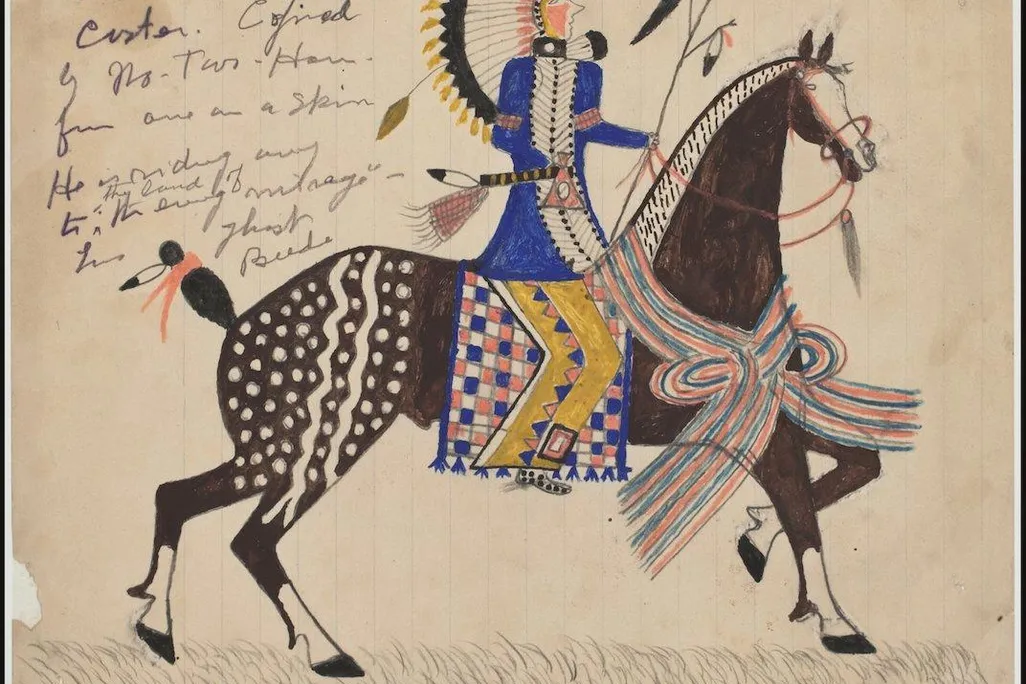 Custer. Copied
by No-Two-Horn.
from one on a Skin
He is riding away
the land of
to the evening "mirage" -
his ghost
Beede